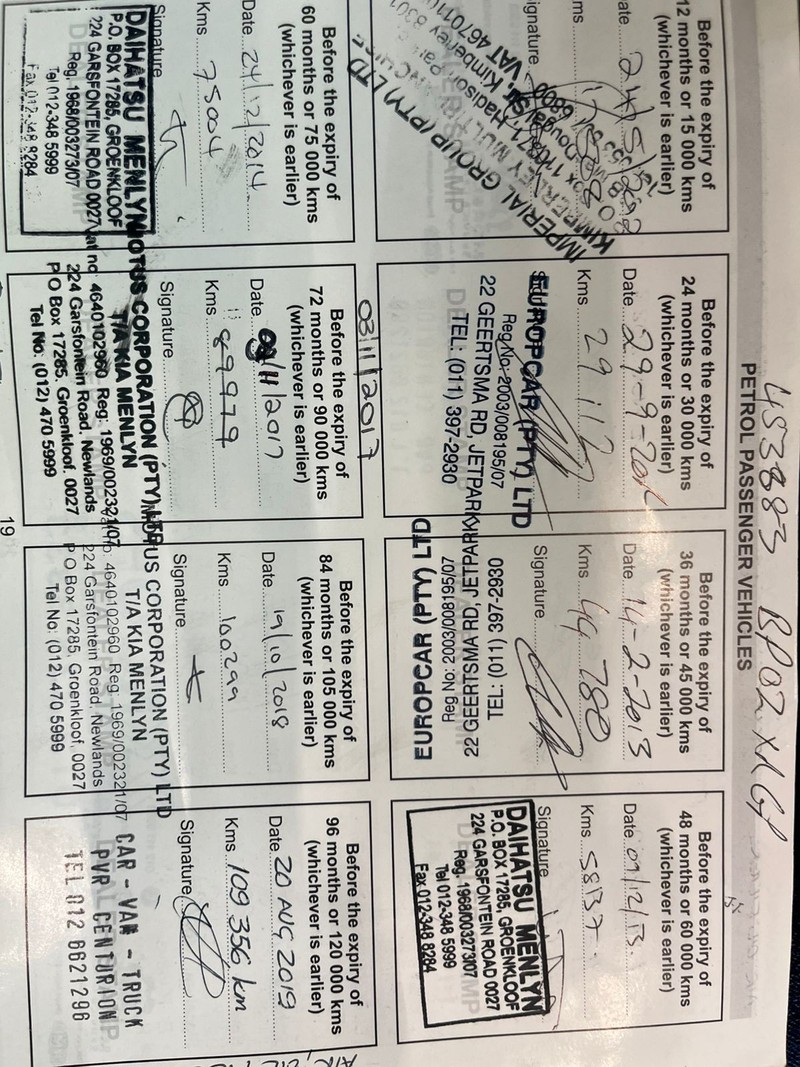 453883 BP02XdGP
PETROL PASSENGER VEHICLES
Before the expiry of
12 months or 15 000 kms
(whichever is earlier)
IMPERIAL GROUP (PTY) LTD
Before the expiry of
24 months or 30 000 kms
(whichever is earlier)
Date
Kms 29 112
EUROPCAR (PTY) LTD
Reg No: 2003/008195/07
22 GEERTSMA RD, JETPARK
TEL: (011) 397-2930
Before the expiry of
36 months or 45 000 kms
(whichever is earlier)
Date 14-2-2013
Kms 44 780
Signature
EUROPCAR (PTY) LTD
Reg No: 2003/008195/07
22 GEERTSMA RD, JETPARK
TEL: (011) 397-2930
Before the expiry of
48 months or 60 000 kms
(whichever is earlier)
Date 07/12/13.
Kms 58137.
Signature
DAIHATSU MENLYN
P.O. BOX 17285, GROENKLOOF
224 GARSFONTEIN ROAD 0027
Reg. 1968/003273/07
Tel 012-348 5999
Fax 012-348 8284
Before the expiry of
60 months or 75 000 kms
(whichever is earlier)
Date 24/12/2014
Kms 75004
Signature
DAIHATSU MENLYN
P.O. BOX 17285, GROENKLOOF
224 GARSFONTEIN ROAD 0027
Reg. 1968/003273/07
Tel 012-348 5999
Fax 012-348 8284
03/11/2017
Before the expiry of
72 months or 90 000 kms
(whichever is earlier)
Date 03/11/2017
Kms 89979
Signature
MOTUS CORPORATION (PTY) LTD
T/A KIA MENLYN
Vat no 4640102960 Reg: 1969/002321/07
224 Garsfontein Road, Newlands
P O Box 17285, Groenkloof, 0027
Tel No: (012) 470 5999
Before the expiry of
84 months or 105 000 kms
(whichever is earlier)
Date 19/10/2018
Kms 100299
Signature
MOTUS CORPORATION (PTY) LTD
T/A KIA MENLYN
4640102960 Reg: 1969/002321/07
224 Garsfontein Road, Newlands
P O Box 17285, Groenkloof, 0027
Tel No: (012) 470 5999
Before the expiry of
96 months or 120 000 kms
(whichever is earlier)
Date 20 AUG 2019
Kms 109 356 km
Signature
CAR - VAN - TRUCK
PVR CENTURION
TEL 012 6621296
19